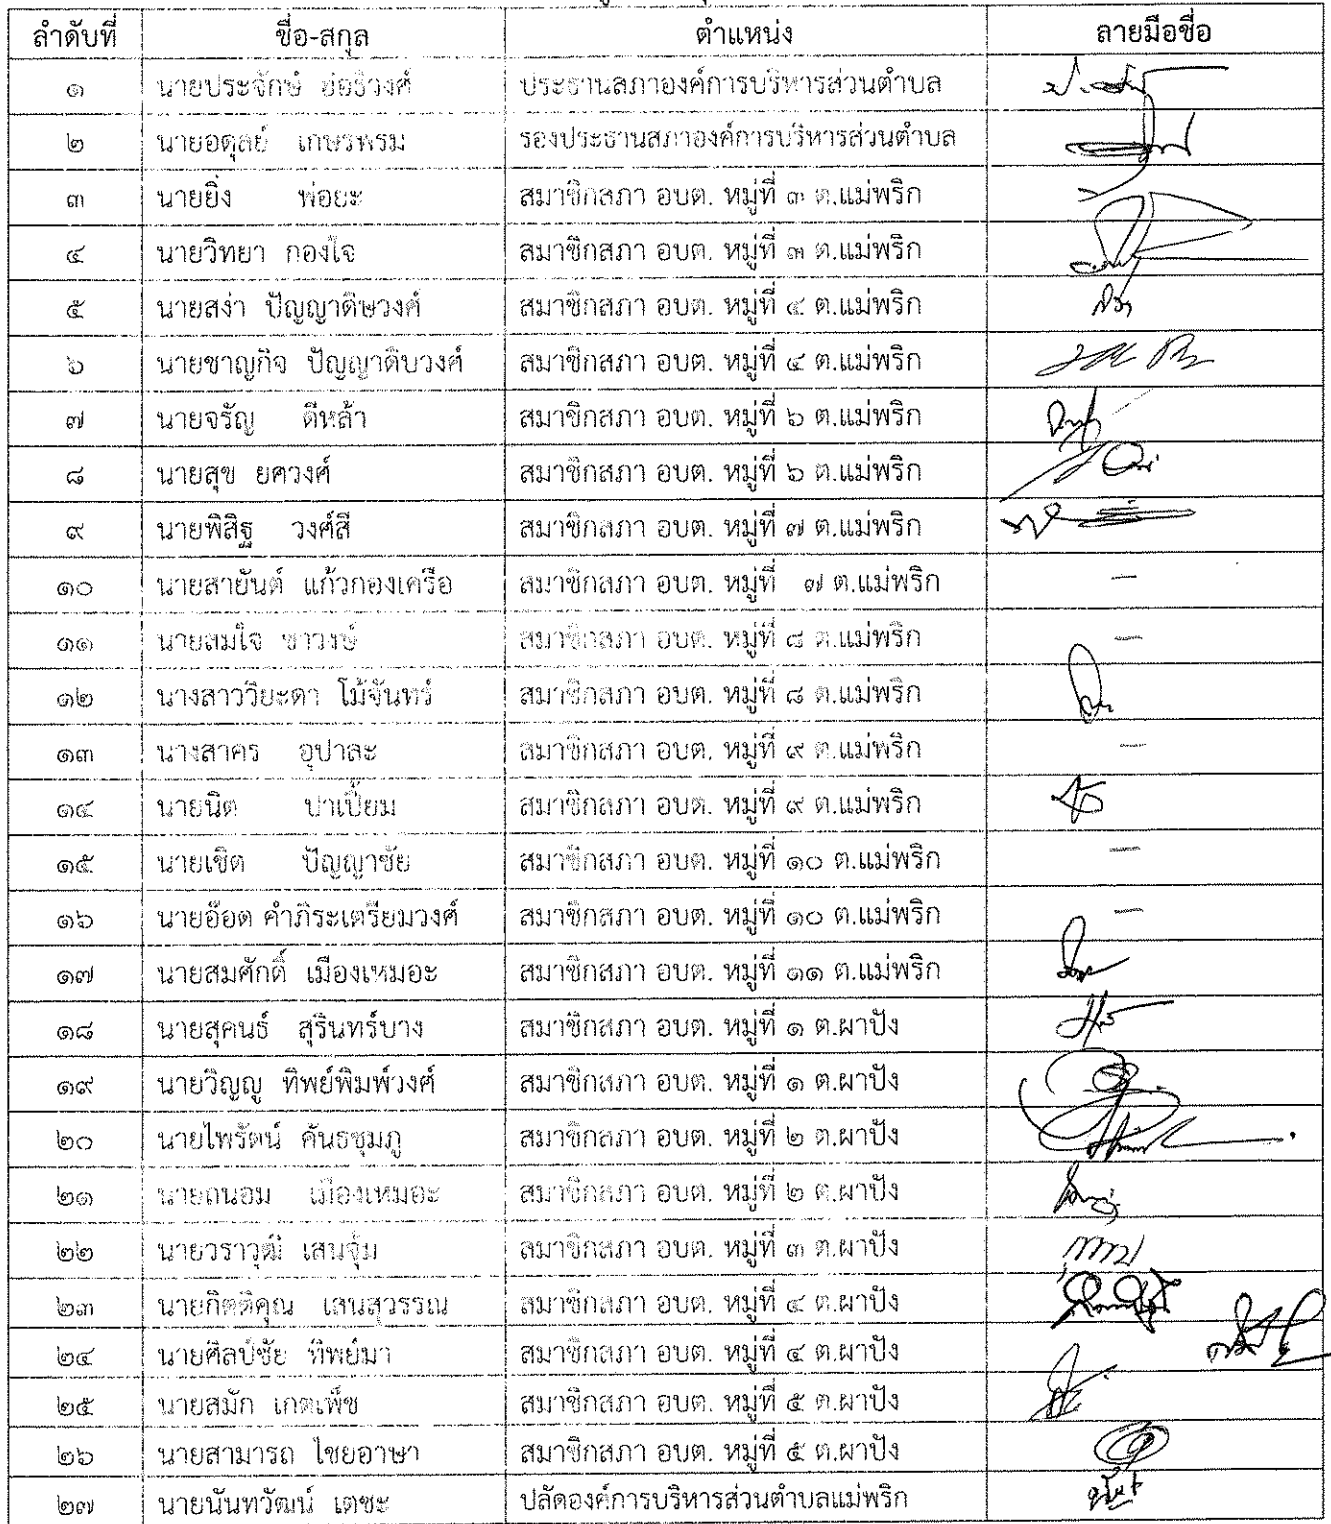 ลำดับที่ ชื่อ-สกุล ตำแหน่ง ลายมือชื่อ
๑ นายประจักษ์ ประธานสภาองค์การบริหารส่วนตำบล
๒ นายอดุลย์ เกษรพรม รองประธานสภาองค์การบริหารส่วนตำบล
๓ นายยิ่ง พ่อยะ สมาชิกสภา อบต. หมู่ที่ ๓ ต.แม่พริก
๔ นายวิทยา กองใจ สมาชิกสภา อบต. หมู่ที่ ๓ ต.แม่พริก
๕ นายสง่า ปัญญาดิษวงศ์ สมาชิกสภา อบต. หมู่ที่ ๔ ต.แม่พริก
๖ นายชาญกิจ ปัญญาดิบวงศ์ สมาชิกสภา อบต. หมู่ที่ ๔ ต.แม่พริก
๗ นายจรัญ ดีหล้า สมาชิกสภา อบต. หมู่ที่ ๖ ต.แม่พริก
๘ นายสุข ยศวงศ์ สมาชิกสภา อบต. หมู่ที่ ๖ ต.แม่พริก
๙ นายพิสิฐ วงศ์สี สมาชิกสภา อบต. หมู่ที่ ๗ ต.แม่พริก
๑๐ นายสายันต์ แก้วกองเครือ สมาชิกสภา อบต. หมู่ที่ ๗ ต.แม่พริก –
๑๑ นายสมใจ ซาวงษ์ สมาชิกสภา อบต. หมู่ที่ ๘ ต.แม่พริก –
๑๒ นางสาววิยะดา โม้จันทร์ สมาชิกสภา อบต. หมู่ที่ ๘ ต.แม่พริก
๑๓ นางสาคร อุปาละ สมาชิกสภา อบต. หมู่ที่ ๙ ต.แม่พริก –
๑๔ นายนิต ปาเปี้ยม สมาชิกสภา อบต. หมู่ที่ ๙ ต.แม่พริก
๑๕ นายเชิด ปัญญาชัย สมาชิกสภา อบต. หมู่ที่ ๑๐ ต.แม่พริก –
๑๖ นายอ๊อด คำภิระเตรียมวงศ์ สมาชิกสภา อบต. หมู่ที่ ๑๐ ต.แม่พริก –
๑๗ นายสมศักดิ์ เมืองเหมอะ สมาชิกสภา อบต. หมู่ที่ ๑๑ ต.แม่พริก
๑๘ นายสุคนธ์ สุรินทร์บาง สมาชิกสภา อบต. หมู่ที่ ๑ ต.ผาปัง
๑๙ นายวิญญู ทิพย์พิมพ์วงศ์ สมาชิกสภา อบต. หมู่ที่ ๑ ต.ผาปัง
๒๐ นายไพรัตน์ คันธชุมภู สมาชิกสภา อบต. หมู่ที่ ๒ ต.ผาปัง
๒๑ นายถนอม เมืองเหมอะ สมาชิกสภา อบต. หมู่ที่ ๒ ต.ผาปัง
๒๒ นายวราวุฒิ เสนจุ้ม สมาชิกสภา อบต. หมู่ที่ ๓ ต.ผาปัง
๒๓ นายกิตติคุณ เสนสุวรรณ สมาชิกสภา อบต. หมู่ที่ ๔ ต.ผาปัง
๒๔ นายศิลป์ชัย ทิพย์มา สมาชิกสภา อบต. หมู่ที่ ๔ ต.ผาปัง
๒๕ นายสมัก เกตเพ็ช สมาชิกสภา อบต. หมู่ที่ ๕ ต.ผาปัง
๒๖ นายสามารถ ไชยอาษา สมาชิกสภา อบต. หมู่ที่ ๕ ต.ผาปัง
๒๗ นายนันทวัฒน์ เตชะ ปลัดองค์การบริหารส่วนตำบลแม่พริก